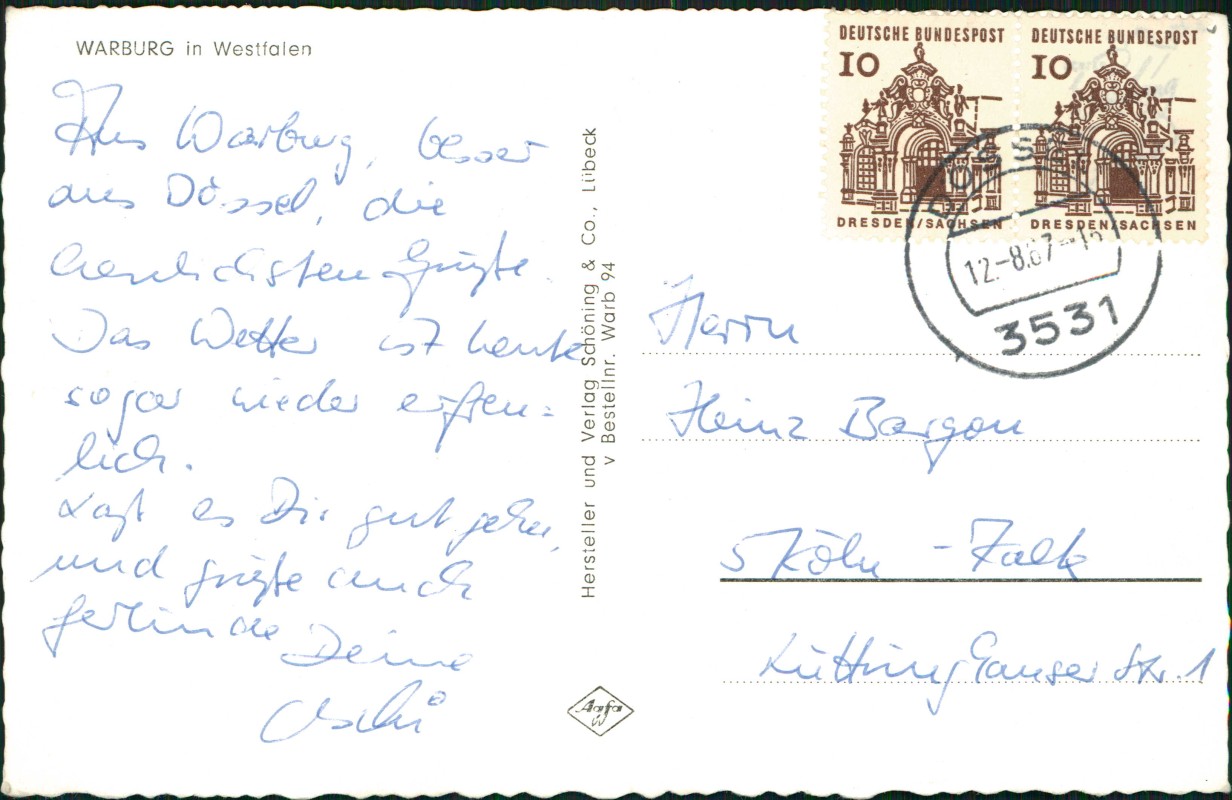 WARBURG in Westfalen
Aus Warburg, besser
aus Dössel, die
herzlichsten Grüße.
Das Wetter ist heute
sogar wieder erfreu=
lich.
Laß es Dir gut gehen,
und grüße auch
Gerlinde Deine
Uschi
Hersteller und Verlag Schöning & Co., Lübeck
v Bestellnr. Warb 94
Agfa
DEUTSCHE BUNDESPOST
10
DRESDEN/SACHSEN
DEUTSCHE BUNDESPOST
10
DRESDEN/SACHSEN
DÖSSEL
12.-8.67-15
3531
Herrn
Heinz Bargon
5 Köln - Kalk
Lüttringhauser Str. 1